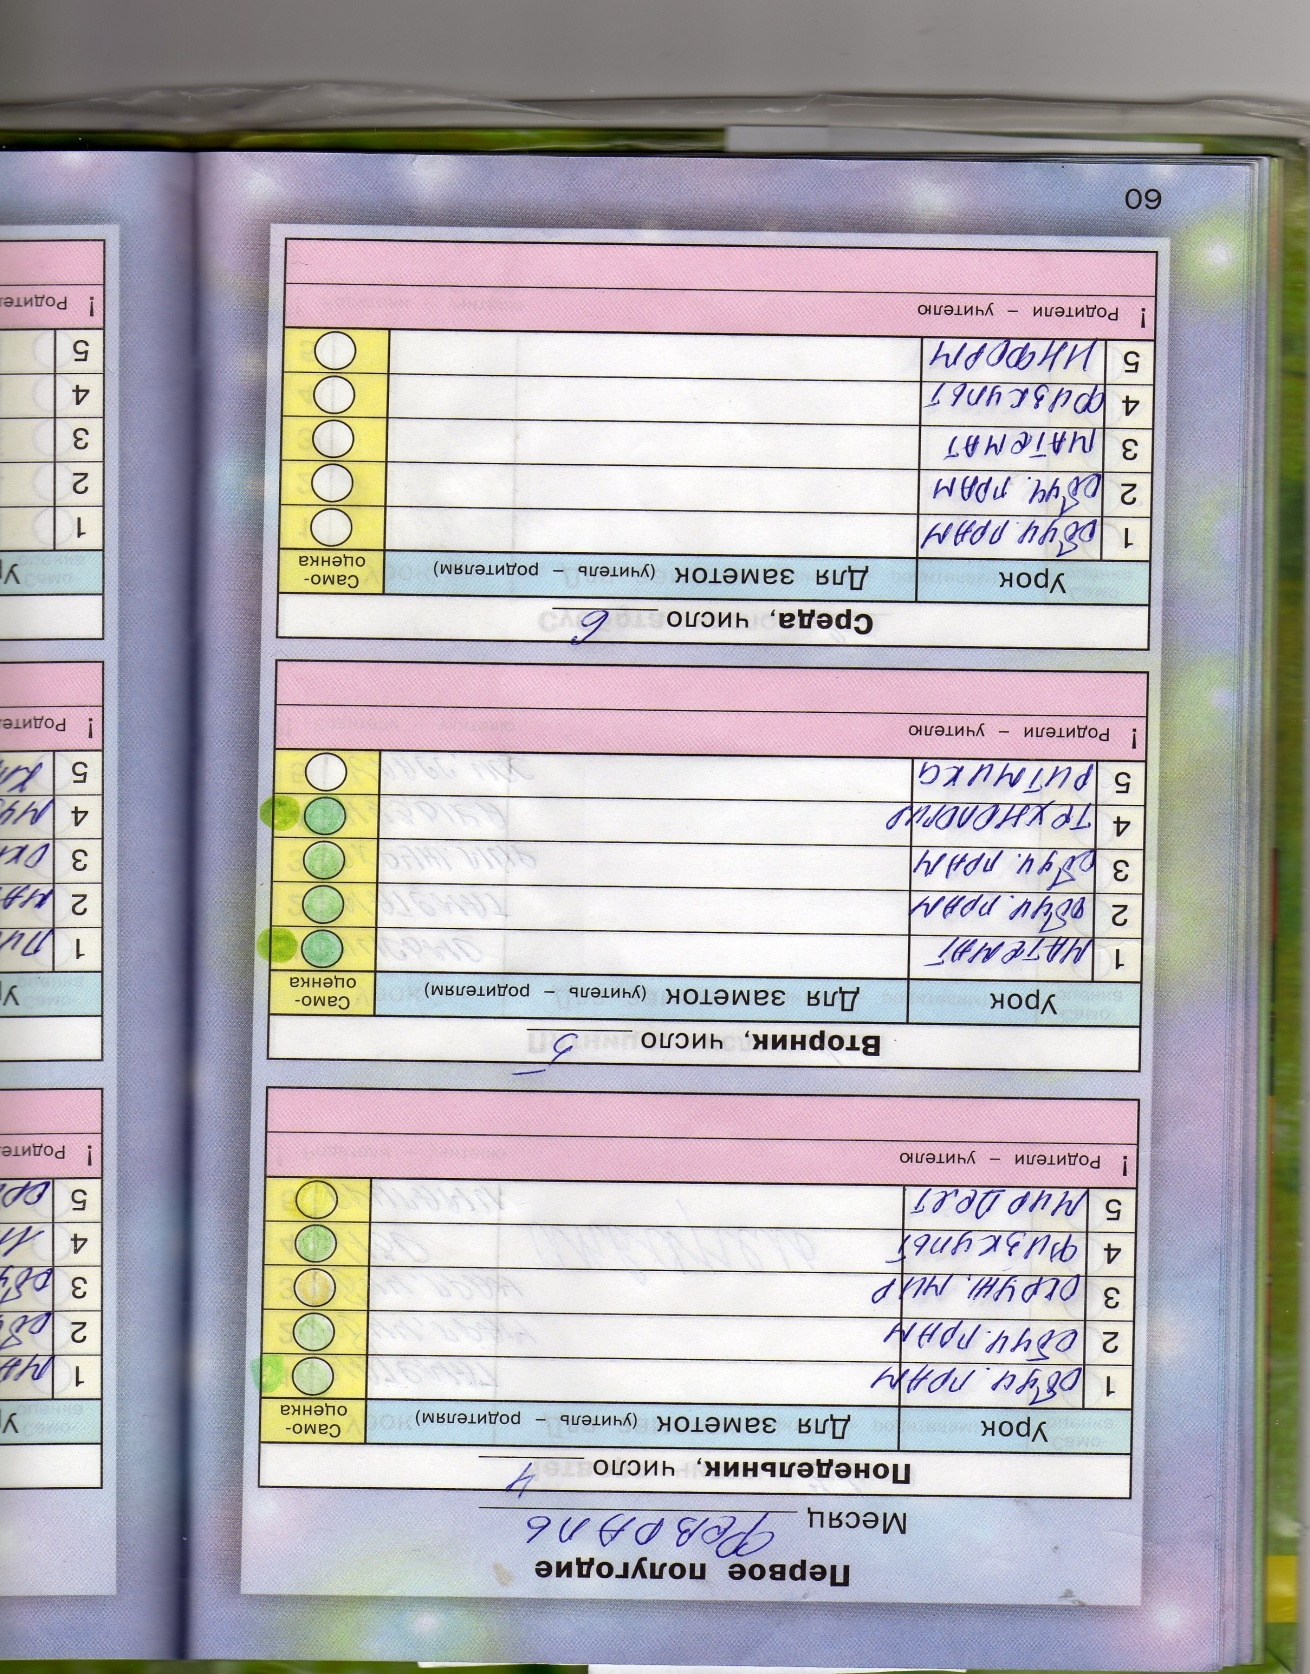 Первое полугодие
Месяц Февраль
Понедельник, число 4
Урок Для заметок (учитель – родителям) Само-
оценка
1 обуч. грам
2 обуч. грам
3 окруж. мир
4 физкульт
5 мир дея
! Родители – учителю
Вторник, число 5
Урок Для заметок (учитель – родителям) Само-
оценка
1 математ
2 обуч. грам
3 обуч. грам
4 технология
5 ритмика
! Родители – учителю
Среда, число 6
Урок Для заметок (учитель – родителям) Само-
оценка
1 обуч. грам
2 обуч. грам
3 математ
4 физкульт
5 информ
! Родители – учителю
60
1
2
3
4
5
! Родите
1
2
3
4
5
! Родите
1
2
3
4
5
! Родите